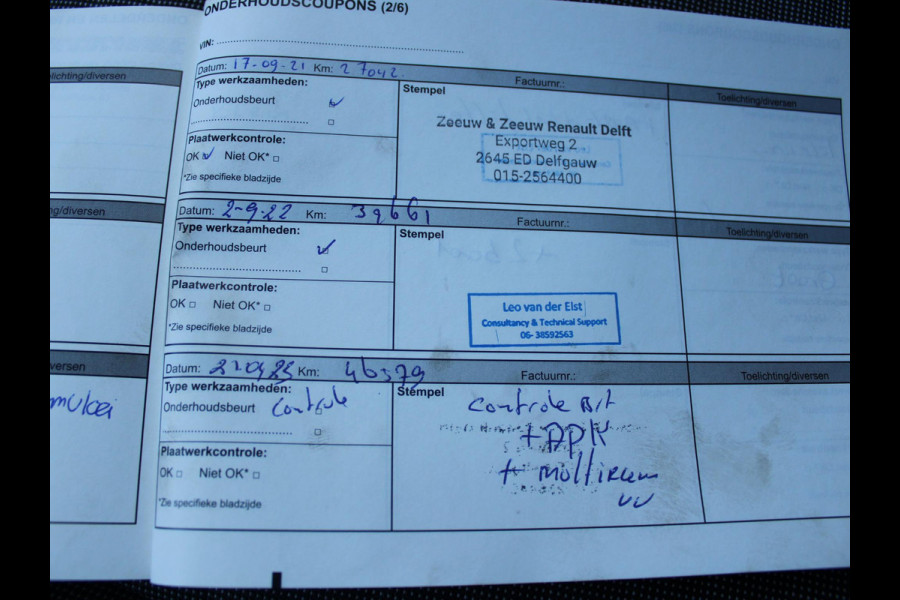 ONDERHOUDSCOUPONS (2/6)
VIN:
Datum: 17-09-21 Km: 27042 Factuurnr.:
Type werkzaamheden:
Onderhoudsbeurt
Plaatwerkcontrole:
OK Niet OK*
*Zie specifieke bladzijde
Stempel
Zeeuw & Zeeuw Renault Delft
Exportweg 2
2645 ED Delfgauw
015-2564400
Toelichting/diversen
Datum: 2-9-22 Km: 39661 Factuurnr.:
Type werkzaamheden:
Onderhoudsbeurt
Plaatwerkcontrole:
OK Niet OK*
*Zie specifieke bladzijde
Stempel
Leo van der Elst
Consultancy & Technical Support
06-38592563
Toelichting/diversen
Datum: Km: 46579 Factuurnr.:
Type werkzaamheden:
Onderhoudsbeurt Controle
Plaatwerkcontrole:
OK Niet OK*
*Zie specifieke bladzijde
Stempel
Controle
+ APK
+
Toelichting/diversen